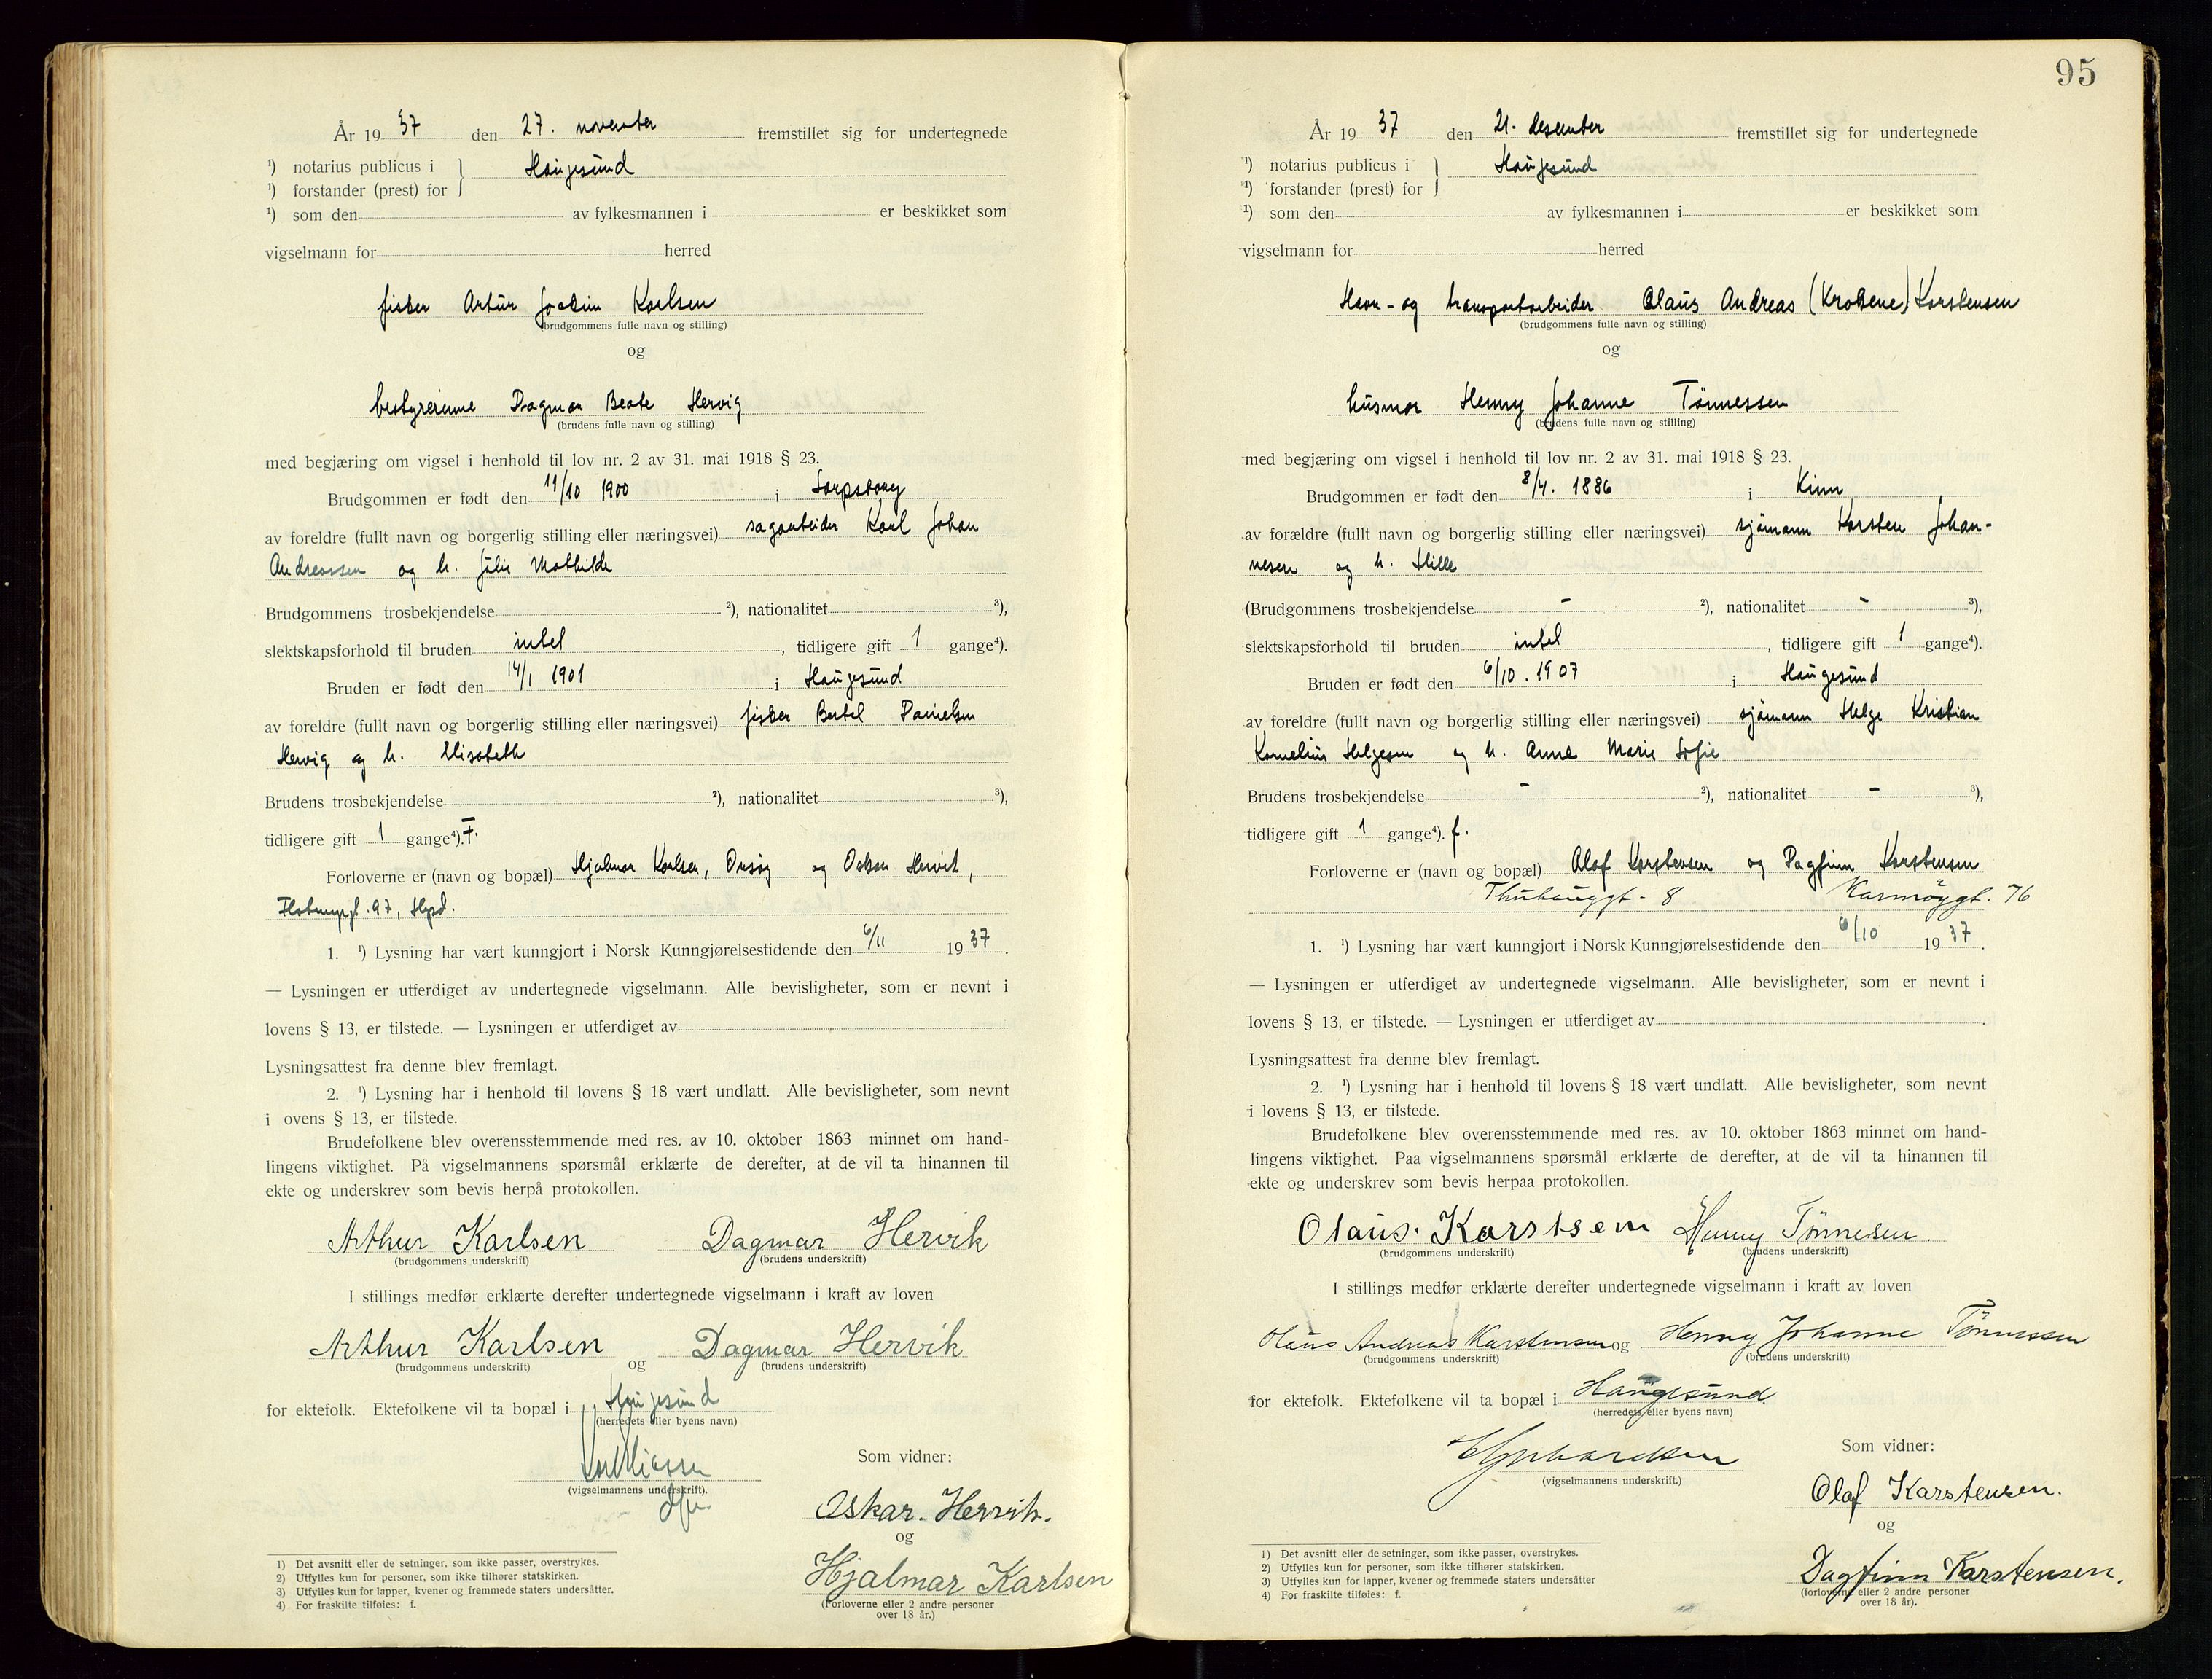 År 19 37 den 27. november fremstillet sig for undertegnede
¹) notarius publicus i } Haugesund
¹) forstander (prest) for
¹) som den av fylkesmannen i er beskikket som
vigselmann for herred
fisker Artur Joakim Karlsen
(brudgommens fulle navn og stilling)
og
bestyrerinne Dagmar Beate Hervig
(brudens fulle navn og stilling)
med begjæring om vigsel i henhold til lov nr. 2 av 31. mai 1918 § 23.
Brudgommen er født den 11/10 1900 i Sarpsborg
av foreldre (fullt navn og borgerlig stilling eller næringsvei) sagarbeider Karl Johan
Andreassen og h. Julie Mathilde
Brudgommens trosbekjendelse ²), nationalitet ³),
slektskapsforhold til bruden intet , tidligere gift 1 gange⁴).
Bruden er født den 14/1 1901 i Haugesund
av foreldre (fullt navn og borgerlig stilling eller næringsvei) fisker Bertel Danielsen
Hervig og h. Elisabeth
Brudens trosbekjendelse ²), nationalitet ³),
tidligere gift 1 gange⁴). F.
Forloverne er (navn og bopæl) Hjalmar Karlsen, Onsøy og Oskar Hervik,
97, Hgsd.
1. ¹) Lysning har vært kunngjort i Norsk Kunngjørelsestidende den 6/11 19 37 .
— Lysningen er utferdiget av undertegnede vigselmann. Alle bevisligheter, som er nevnt i
lovens § 13, er tilstede. — Lysningen er utferdiget av
Lysningsattest fra denne blev fremlagt.
2. ¹) Lysning har i henhold til lovens § 18 vært undlatt. Alle bevisligheter, som nevnt
i ovens § 13, er tilstede.
Brudefolkene blev overensstemmende med res. av 10. oktober 1863 minnet om hand-
lingens viktighet. På vigselmannens spørsmål erklærte de derefter, at de vil ta hinannen til
ekte og underskrev som bevis herpå protokollen.
Arthur Karlsen Dagmar Hervik
(brudgommens underskrift) (brudens underskrift)
I stillings medfør erklærte derefter undertegnede vigselmann i kraft av loven
Arthur Karlsen og Dagmar Hervik
(brudgommens underskrift) (brudens underskrift)
for ektefolk. Ektefolkene vil ta bopæl i Haugesund
(herredets eller byens navn)
Som vidner:
(vigselmannens underskrift).
Oskar. Hervik.
og
Hjalmar Karlsen
(Forloverne eller 2 andre personer
over 18 år.)
1) Det avsnitt eller de setninger, som ikke passer, overstrykes.
2) Utfylles kun for personer, som ikke tilhører statskirken.
3) Utfylles kun for lapper, kvener og fremmede staters undersåtter.
4) For fraskilte tilføies: f.
95
År 19 37 den 21. desember fremstillet sig for undertegnede
¹) notarius publicus i } Haugesund
¹) forstander (prest) for
¹) som den av fylkesmannen i er beskikket som
vigselmann for herred
Havn- og transportarbeider Olaus Andreas (Krokene) Karstensen
(brudgommens fulle navn og stilling)
og
husmor Henny Johanne Tönnessen
(brudens fulle navn og stilling)
med begjæring om vigsel i henhold til lov nr. 2 av 31. mai 1918 § 23.
Brudgommen er født den 8/4. 1886 i Kinn
av forældre (fullt navn og borgerlig stilling eller næringsvei) sjömann Karsten Johan-
nesen og h. Hille
(Brudgommens trosbekjendelse - ²), nationalitet - ³),
slektskapsforhold til bruden intet , tidligere gift 1 gange⁴).
Bruden er født den 6/10. 1907 i Haugesund
av foreldre (fullt navn og borgerlig stilling eller næringsvei) sjömann Helge Kristian
Kornelius Helgesen og h. Anne Marie Sofie
Brudens trosbekjendelse - ²), nationalitet - ³),
tidligere gift 1 gange⁴). f.
Forloverne er (navn og bopæl) Olaf Karstensen og Dagfinn Karstensen
Thuhauggt - 8 Karmöygt. 76
1. ¹) Lysning har vært kunngjort i Norsk Kunngjørelsestidende den 6/10 19 37 .
— Lysningen er utferdiget av undertegnede vigselmann. Alle bevisligheter, som er nevnt i
lovens § 13, er tilstede. — Lysningen er utferdiget av .
Lysningsattest fra denne blev fremlagt.
2. ¹) Lysning har i henhold til lovens § 18 vært undlatt. Alle bevisligheter, som nevnt
i lovens § 13, er tilstede.
Brudefolkene blev overensstemmende med res. av 10. oktober 1863 minnet om hand-
lingens viktighet. Paa vigselmannens spørsmål erklærte de derefter, at de vil ta hinannen til
ekte og underskrev som bevis herpaa protokollen.
Olaus. Karstsen Henny Tönnesen.
(brudgommens underskrift) (brudens underskrift)
I stillings medfør erklærte derefter undertegnede vigselmann i kraft av loven
Olaus Andreas Karstensen og Henny Johanne Tönnessen
(brudgommens underskrift) (brudens underskrift)
for ektefolk. Ektefolkene vil ta bopæl i Haugesund.
(herredets eller byens navn)
Som vidner:
(vigselmannens underskrift.)
Olaf Karstensen.
og
Dagfinn Karstensen.
(forloverne eller 2 andre personer
over 18 år).
1) Det avsnitt eller de setninger, som ikke passer, overstrykes.
2) Utfylles kun for personer, som ikke tilhører statskirken.
3) Utfylles kun for lapper, kvener og fremmede staters undersåtter
4) For fraskilte tilføies: f.